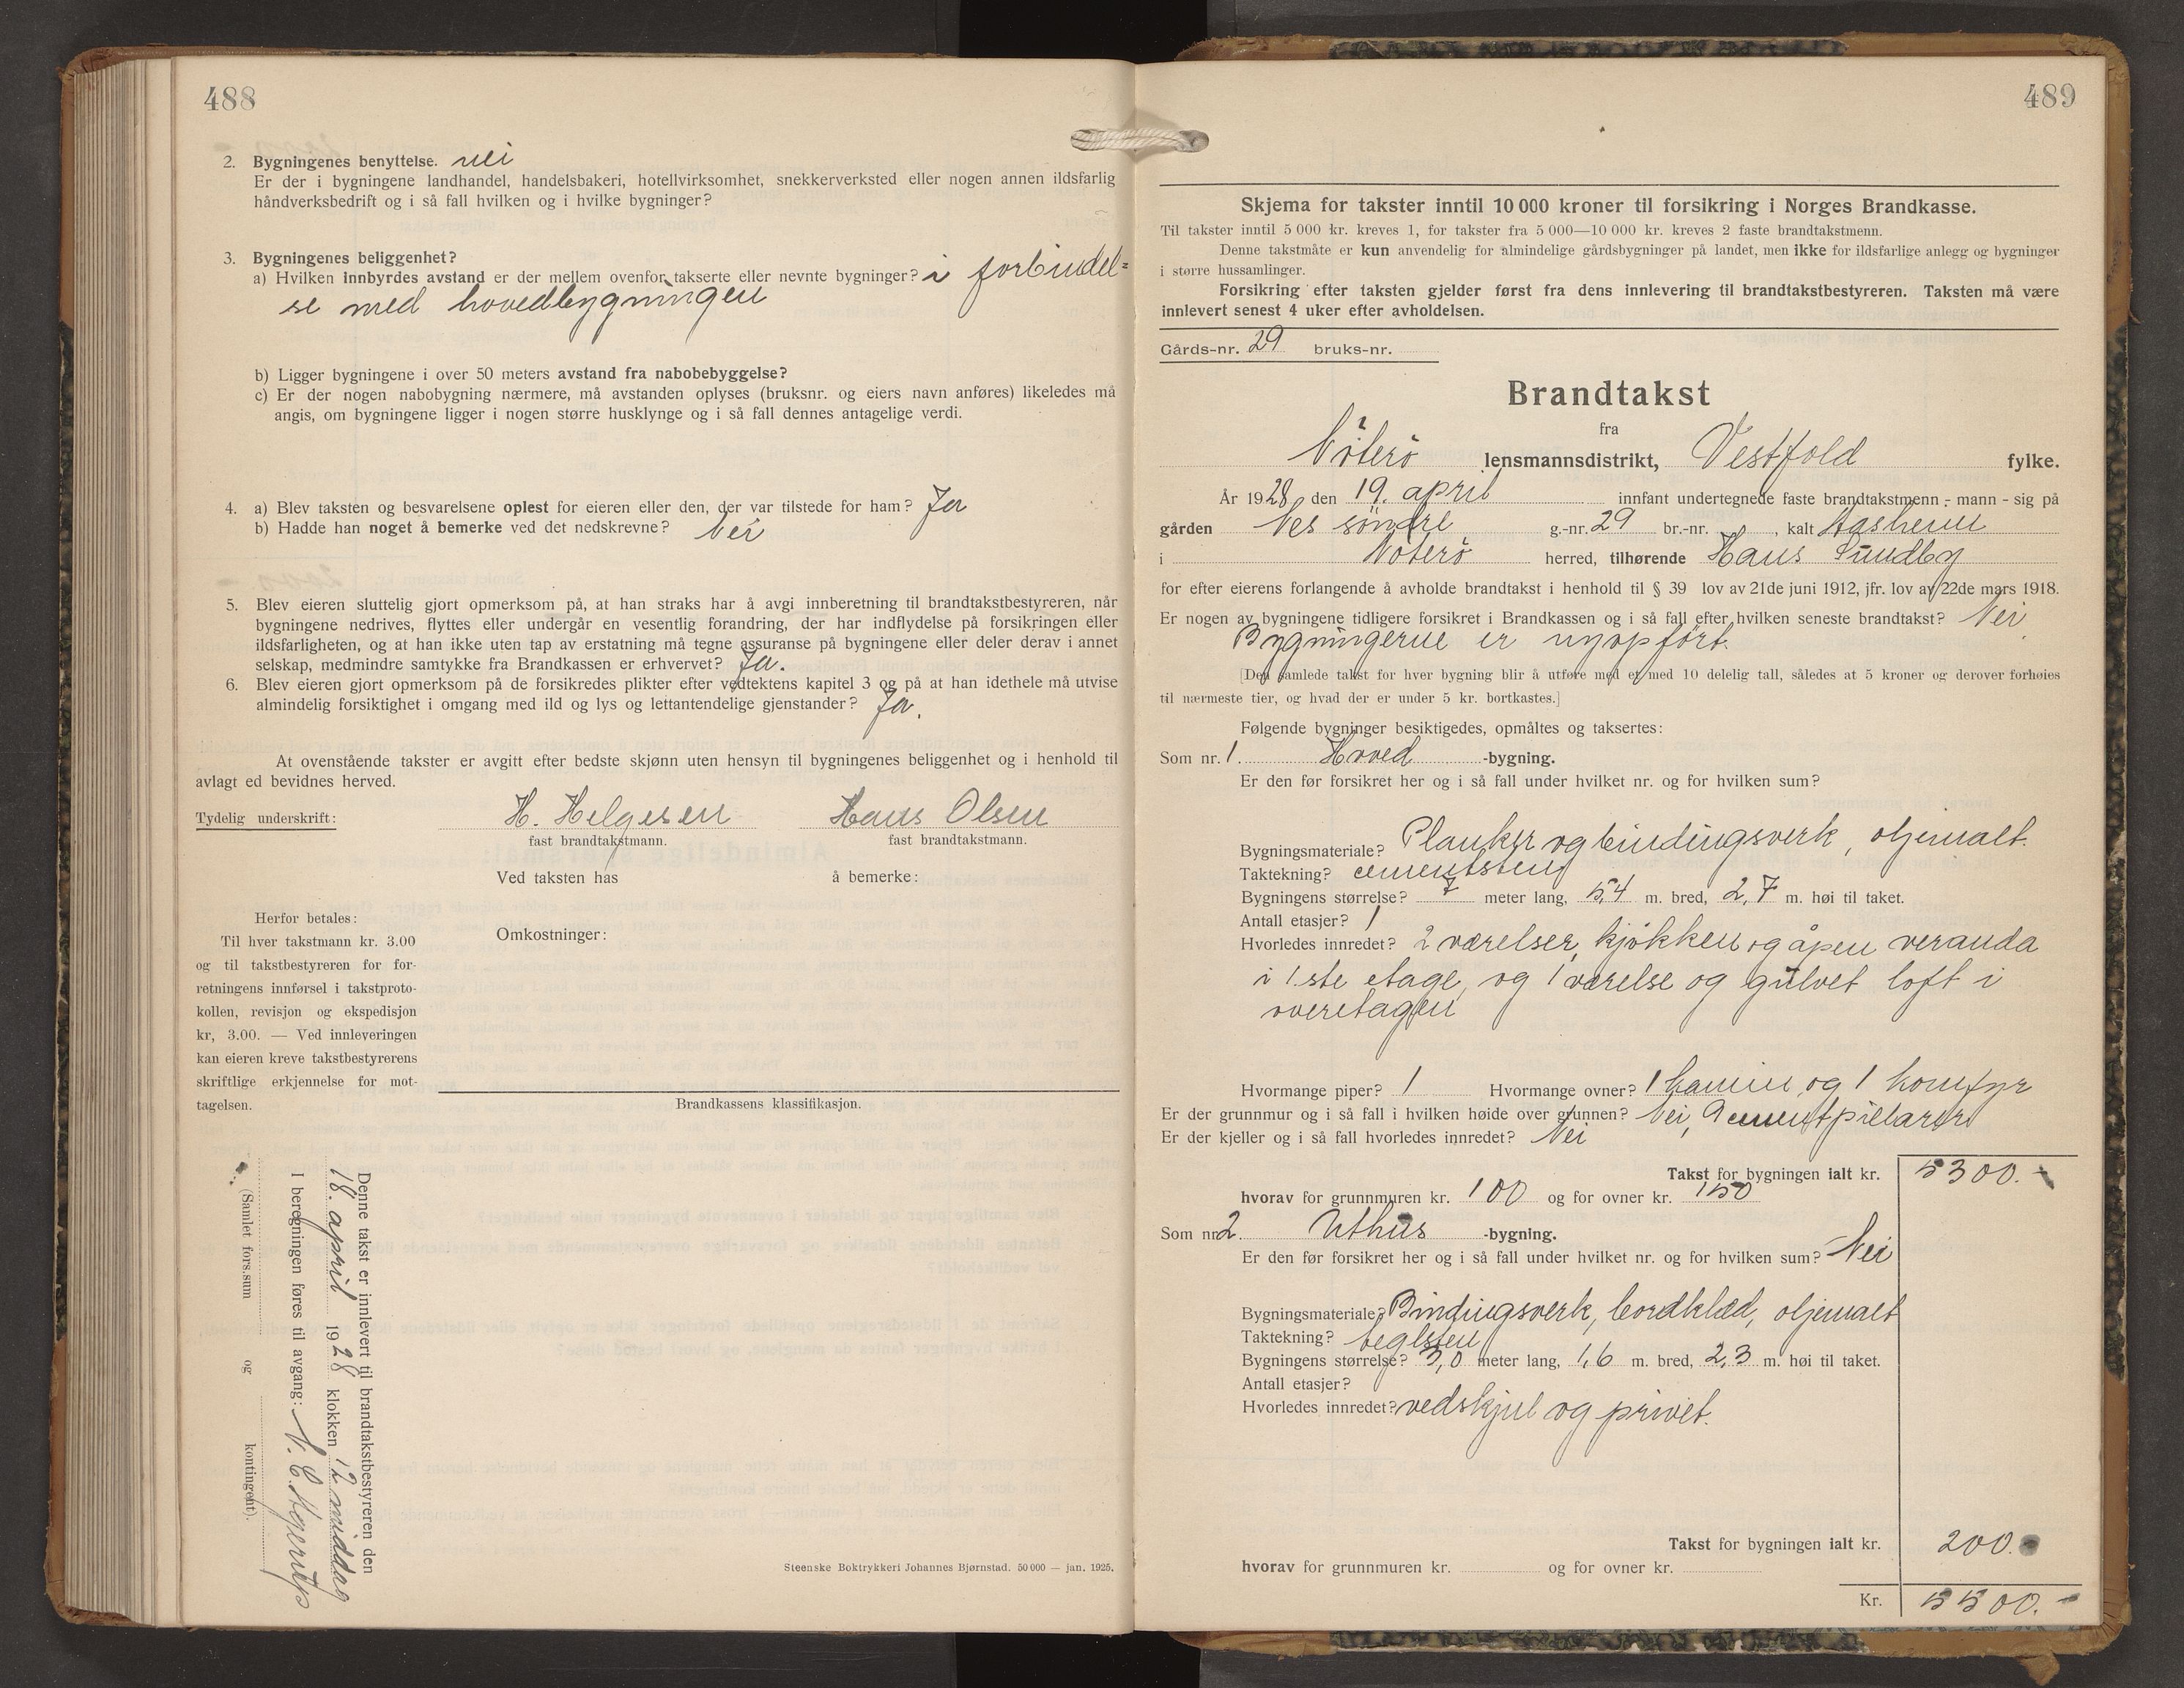 488
2. Bygningenes benyttelse. nei
Er der i bygningene landhandel, handelsbakeri, hotellvirksomhet, snekkerverksted eller nogen annen ildsfarlig
håndverksbedrift og i så fall hvilken og i hvilke bygninger?
3. Bygningenes beliggenhet?
a) Hvilken innbyrdes avstand er der mellem ovenfor takserte eller nevnte bygninger? i forbindel=
se med hovedbygningen
b) Ligger bygningene i over 50 meters avstand fra nabobebyggelse?
c) Er der nogen nabobygning nærmere, må avstanden oplyses (bruksnr. og eiers navn anføres) likeledes må
angis, om bygningene ligger i nogen større husklynge og i så fall dennes antagelige verdi.
4. a) Blev taksten og besvarelsene oplest for eieren eller den, der var tilstede for ham? Ja
b) Hadde han noget å bemerke ved det nedskrevne? Nei
5. Blev eieren sluttelig gjort opmerksom på, at han straks har å avgi innberetning til brandtakstbestyreren, når
bygningene nedrives, flyttes eller undergår en vesentlig forandring, der har indflydelse på forsikringen eller
ildsfarligheten, og at han ikke uten tap av erstatning må tegne assuranse på bygningene eller deler derav i annet
selskap, medmindre samtykke fra Brandkassen er erhvervet? Ja.
6. Blev eieren gjort opmerksom på de forsikredes plikter efter vedtektens kapitel 3 og på at han idethele må utvise
almindelig forsiktighet i omgang med ild og lys og lettantendelige gjenstander? Ja.
At ovenstående takster er avgitt efter bedste skjønn uten hensyn til bygningenes beliggenhet og i henhold til
avlagt ed bevidnes herved.
Tydelig underskrift: H. Helgesen Hans Olsen
fast brandtakstmann. fast brandtakstmann.
Ved taksten has å bemerke:
Herfor betales:
Til hver takstmann kr. 3.00
og til takstbestyreren for for-
retningens innførsel i takstproto-
kollen, revisjon og ekspedisjon
kr, 3.00. — Ved innleveringen
kan eieren kreve takstbestyrerens
skriftlige erkjennelse for mot-
tagelsen.
Omkostninger:
Brandkassens klassifikasjon.
Denne takst er innlevert til brandtakstbestyreren den
18. april 1928 klokken 12 middag
I beregningen føres til avgang:
(Samlet fors.sum og kontingent).
Steenske Boktrykkeri Johannes Bjørnstad. 50 000 — jan. 1925.
489
Skjema for takster inntil 10 000 kroner til forsikring i Norges Brandkasse.
Til takster inntil 5 000 kr. kreves 1, for takster fra 5 000—10 000 kr. kreves 2 faste brandtakstmenn.
Denne takstmåte er kun anvendelig for almindelige gårdsbygninger på landet, men ikke for ildsfarlige anlegg og bygninger
i større hussamlinger.
Forsikring efter taksten gjelder først fra dens innlevering til brandtakstbestyreren. Taksten må være
innlevert senest 4 uker efter avholdelsen.
Gårds-nr. 29 bruks-nr.
Brandtakst
fra
Nöterö lensmannsdistrikt, Vestfold fylke.
År 1928 den 19. april innfant undertegnede faste brandtakstmenn - mann - sig på
gården Nes söndre g.-nr. 29 br.-nr. , kalt
i Nöterö herred, tilhørende Hans Sundby
for efter eierens forlangende å avholde brandtakst i henhold til § 39 lov av 21de juni 1912, jfr. lov av 22de mars 1918.
Er nogen av bygningene tidligere forsikret i Brandkassen og i så fall efter hvilken seneste brandtakst? Nei
Bygningerne er nyopfört.
[Den samlede takst for hver bygning blir å utføre med et med 10 delelig tall, således at 5 kroner og derover forhøies
til nærmeste tier, og hvad der er under 5 kr. bortkastes.]
Følgende bygninger besiktigedes, opmåltes og taksertes:
Som nr. 1. Hoved -bygning.
Er den før forsikret her og i så fall under hvilket nr. og for hvilken sum?
Bygningsmateriale? Planker og bindingsverk, oljemalt.
Taktekning? cementsten
Bygningens størrelse? 7 meter lang, 5,4 m. bred, 2,7 m. høi til taket.
Antall etasjer? 1
Hvorledes innredet? 2 værelser, kjökken og åpen veranda
i 1.ste etage, og 1 værelse og gulvet loft i
overetagen
Hvormange piper? 1 Hvormange ovner? 1 kamin og 1 komfyr
Er der grunnmur og i så fall i hvilken høide over grunnen? Nei, 9 cementpillarer
Er der kjeller og i så fall hvorledes innredet? Nei
Takst for bygningen ialt kr. 5300.-
hvorav for grunnmuren kr. 100 og for ovner kr. 150
Som nr. 2. Uthus -bygning.
Er den før forsikret her og i så fall under hvilket nr. og for hvilken sum? Nei
Bygningsmateriale? Bindingsverk, bordklæd, oljemalt
Taktekning? teglsten
Bygningens størrelse? 3,0 meter lang, 1,6 m. bred, 2,3 m. høi til taket.
Antall etasjer?
Hvorledes innredet? vedskjul og privet.
Takst for bygningen ialt kr. 200.-
hvorav for grunnmuren kr. og for ovner kr.
Kr. 5500.-